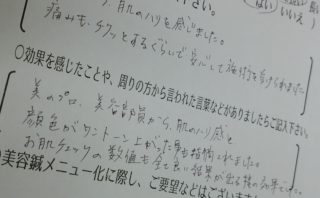 さい。 はい いいえ
、肌のハリを感じました。
痛みも、チクッとするぐらいで安心して施術を受けられました
○効果を感じたことや、周りの方から言われた言葉などがありましたらご記入下さい。
美のプロ、美容部員から、肌のハリ感と
顔色がワントーン上がった事を指摘されました。
お肌チェックの数値も全て良い結果が出る程の効果でした。
美容鍼メニュー化に際し、ご要望などはございます